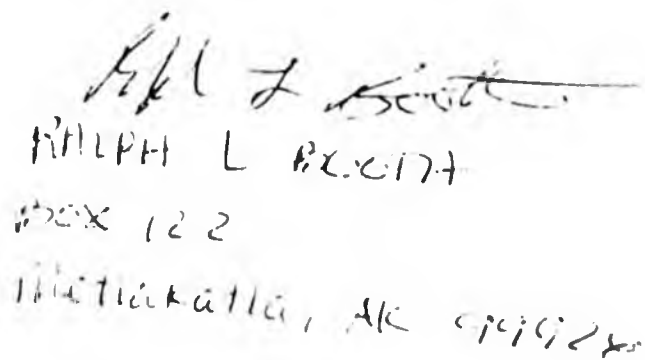 Ralph L Booth
RALPH L BOOTH
BOX 122
Metlakatla, AK 99926